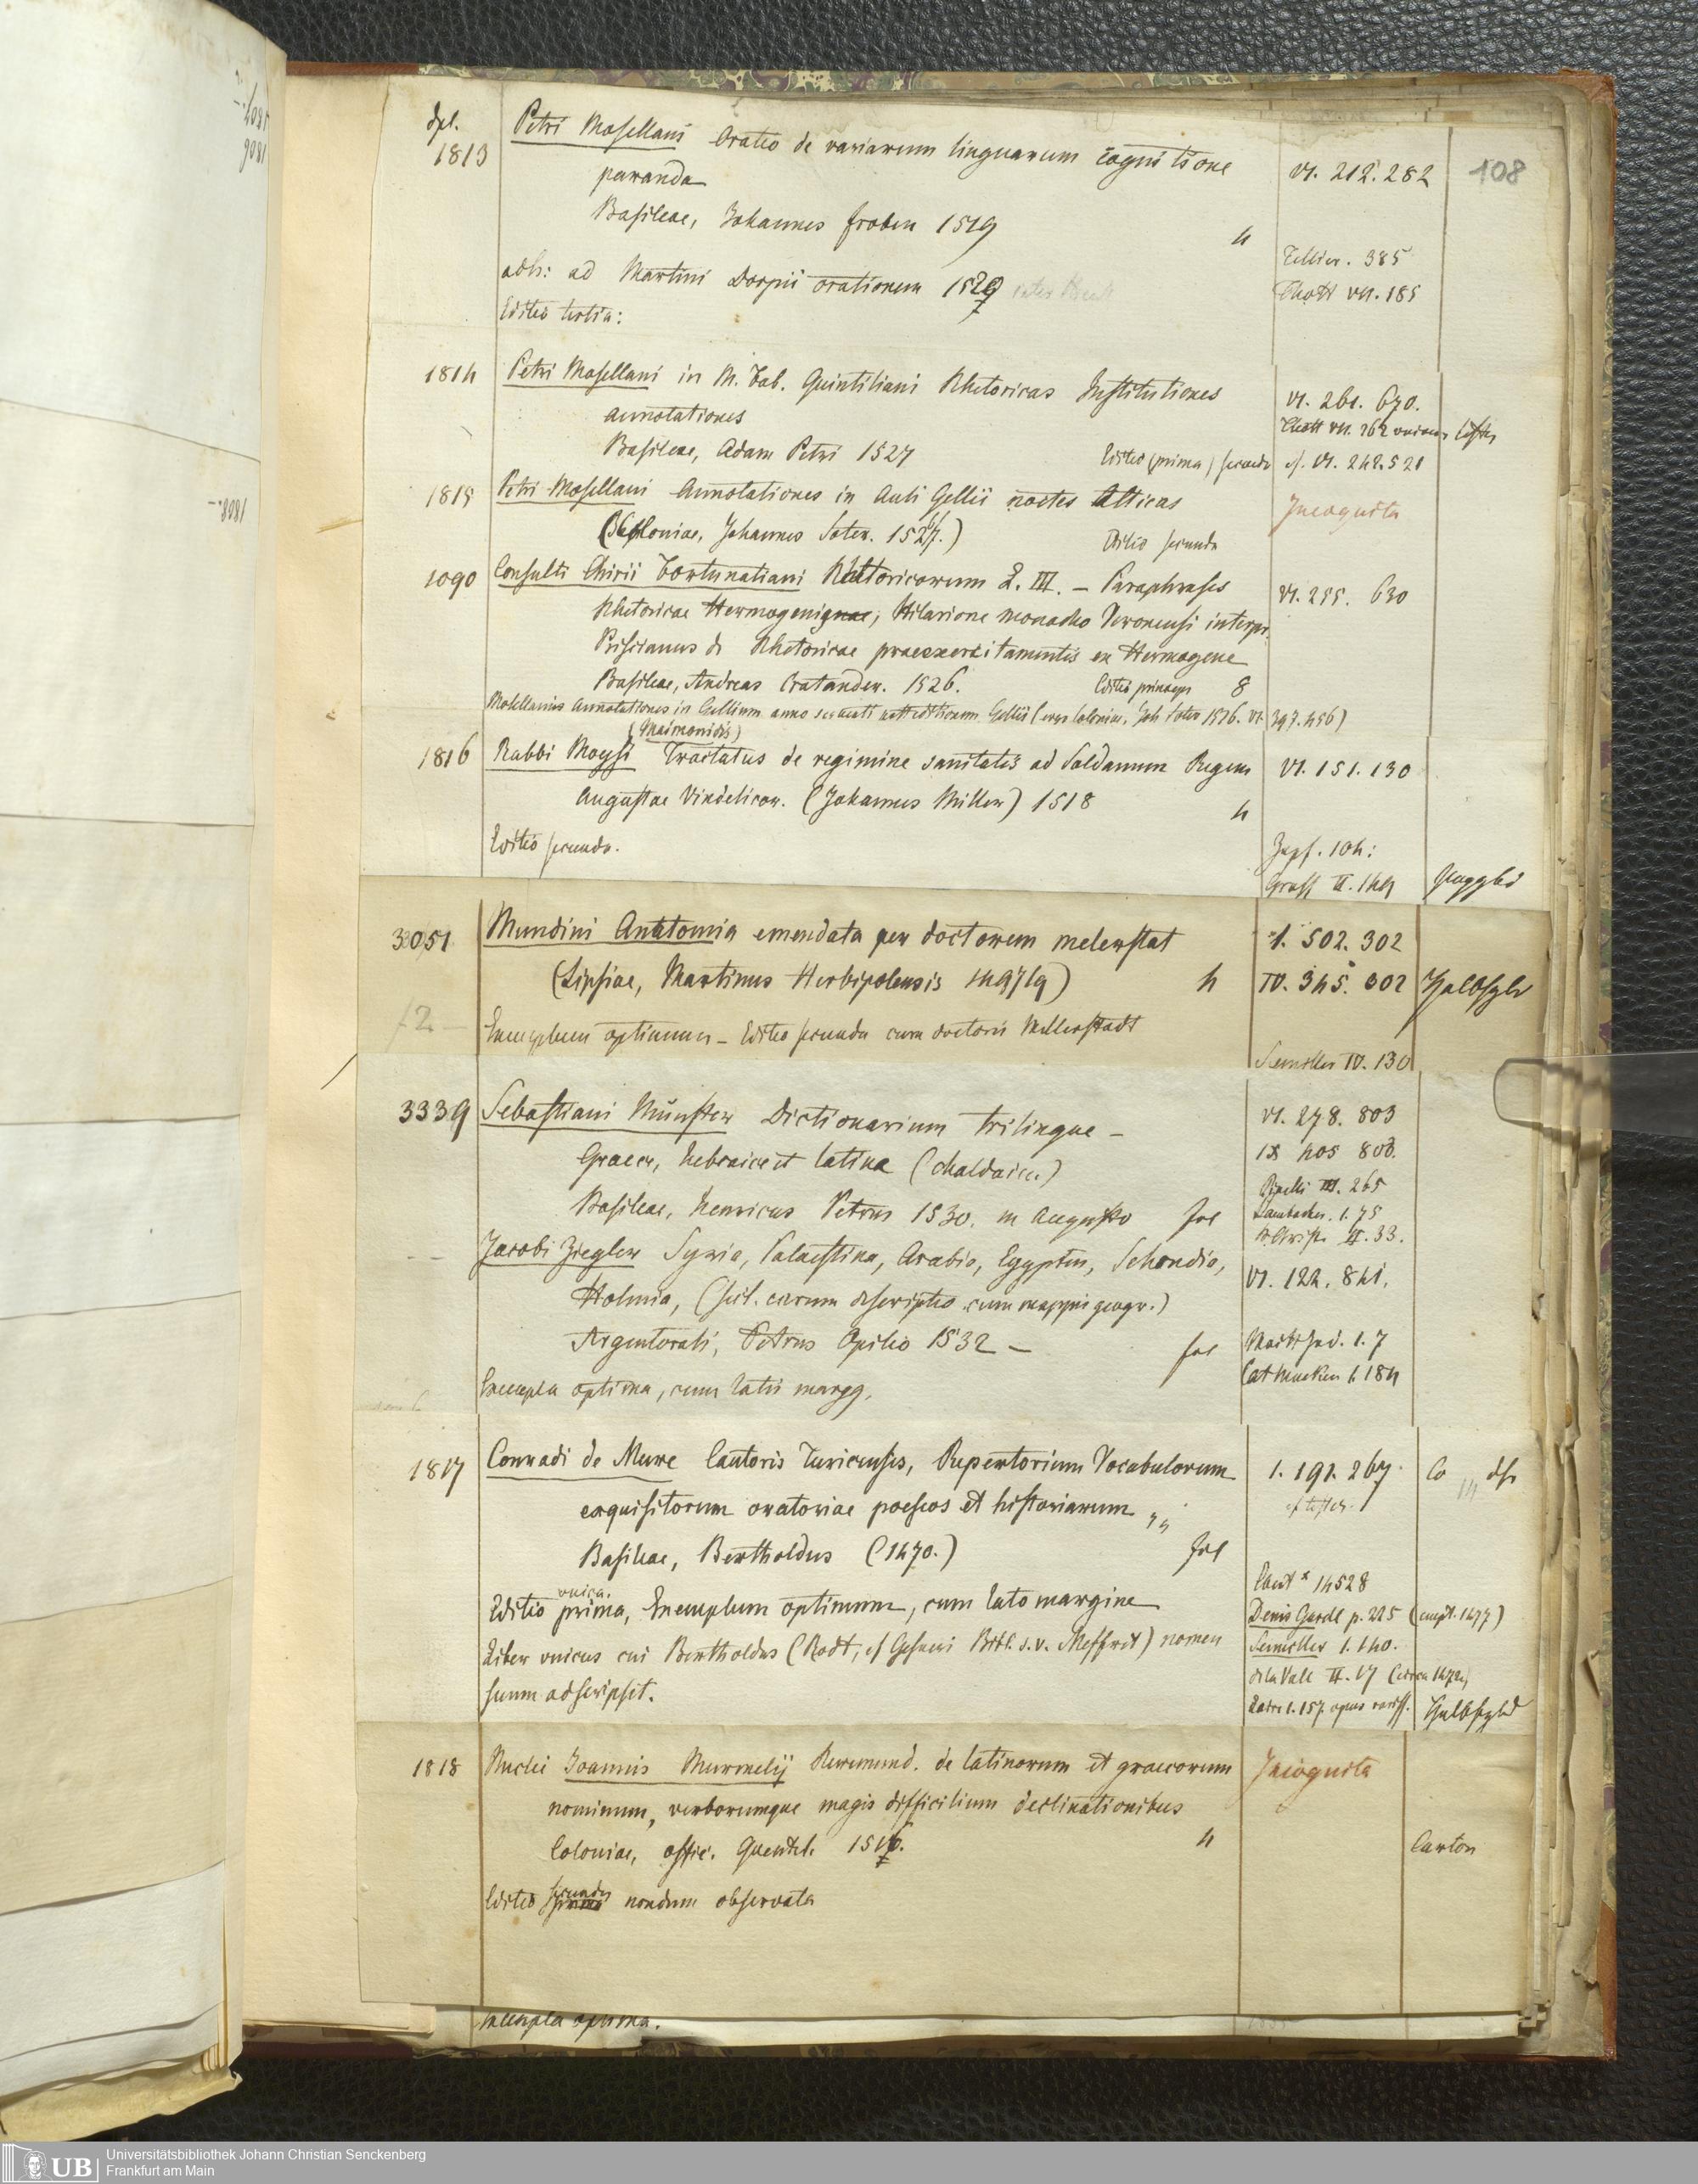 dpl.
1813 Petri Mosellani Oratio de variarum linguarum cognitione
paranda
Basileae, Johannes Froben 1519 4
VI. 212. 282
108
adh: ad Martini Dorpii orationem 1529
Editio tertia:
Tellier. 385
Thott VII. 185
1814 Petri Mosellani in M. Fab. Quintiliani Rhetoricas Institutiones
annotationes
Basileae, Adam Petri 1527 Editio (prima) secunda
VI. 261. 670.
Thott VII. 262
cf. VI. 242. 521
1815 Petri Mosellani Annotationes in Auli Gellii noctes Atticas
(Coloniae, Johannes Soter. 1527.) Editio secunda
Incognita
1090 Consulti Chirii Fortunatiani Rhetoricorum L. III. – Paraphrases
Rhetoricae Hermogenis, Hilarione monacho Veronensi interpr.
Priscianus de Rhetoricae praeexercitamentis ex Hermogene
Basileae, Andreas Cratander. 1526. Editio princeps 8
VI. 255. 630
Mosellanus Annotationes in Gellium anno Gellii (Coloniae, Joh Soter 1526. VI. 397. 456)
(Maimonidis)
1816 Rabbi Moysi Tractatus de regimine sanitatis ad Soldanum Regem
Augustae Vindelicor. (Johannes Miller) 1518 4
VI. 151. 130
Editio secunda.
Zapf. 104:
II. 149
3051 Mundini Anatomia emendata per doctorem melerstat
(Lipsiae, Martinus Herbipolensis 1497/9) 4
I. 502. 302
IV. 345. 302
12 –
Exemplum optimum – Editio secunda cura doctoris Mellerstadt
Seemiller IV. 130
3339 Sebastiani Münster Dictionarium trilingue –
Graece, hebraice et latina (chaldaice.)
Basileae, Henricus Petrus 1530. m Augusto fol
VI. 278. 803
IX 405 803.
Pinelli III. 265
Lambacher. 1. 75
II. 33.
– – Jacobi Ziegler Syria, Palaestina, Arabia, Egyptus, Schondia,
Holmia, (scil. earum descriptio cum mappis geogr.)
Argentorati, Petrus Opilio 1532 – fol
VI. 122. 841.
1. 7
1. 184
Exempla optima, cum latis margg.
1817 Conradi de Mure Cantoris Turicensis, Repertorium Vocabulorum
exquisitorum oratoriae poeseos et historiarum
Basileae, Bertholdus (1470.) fol
I. 191. 267.
Co
unica.
Editio prima, Exemplum optimum, cum lato margine
Liber unicus cui Bertholdus (Rodt, cf Gesneri Bibl. s.v. Meffret) nomen
suum adscripsit.
14528
Denis Garell p. 225 (1477)
Seemiller 1. 140.
de la Vall II. 17 (circa 1472)
1. 157 opus rariss.
1818 Nuclei Joannis Murmelij Ruremund. de latinorum et graecorum
nominum, verborumque magis difficilium declinationibus
Coloniae, offic. Quentel. 1517. 4
Incognita
Carton
Editio secunda nondum observata
exempla optima.
Universitätsbibliothek Johann Christian Senckenberg
Frankfurt am Main
UB